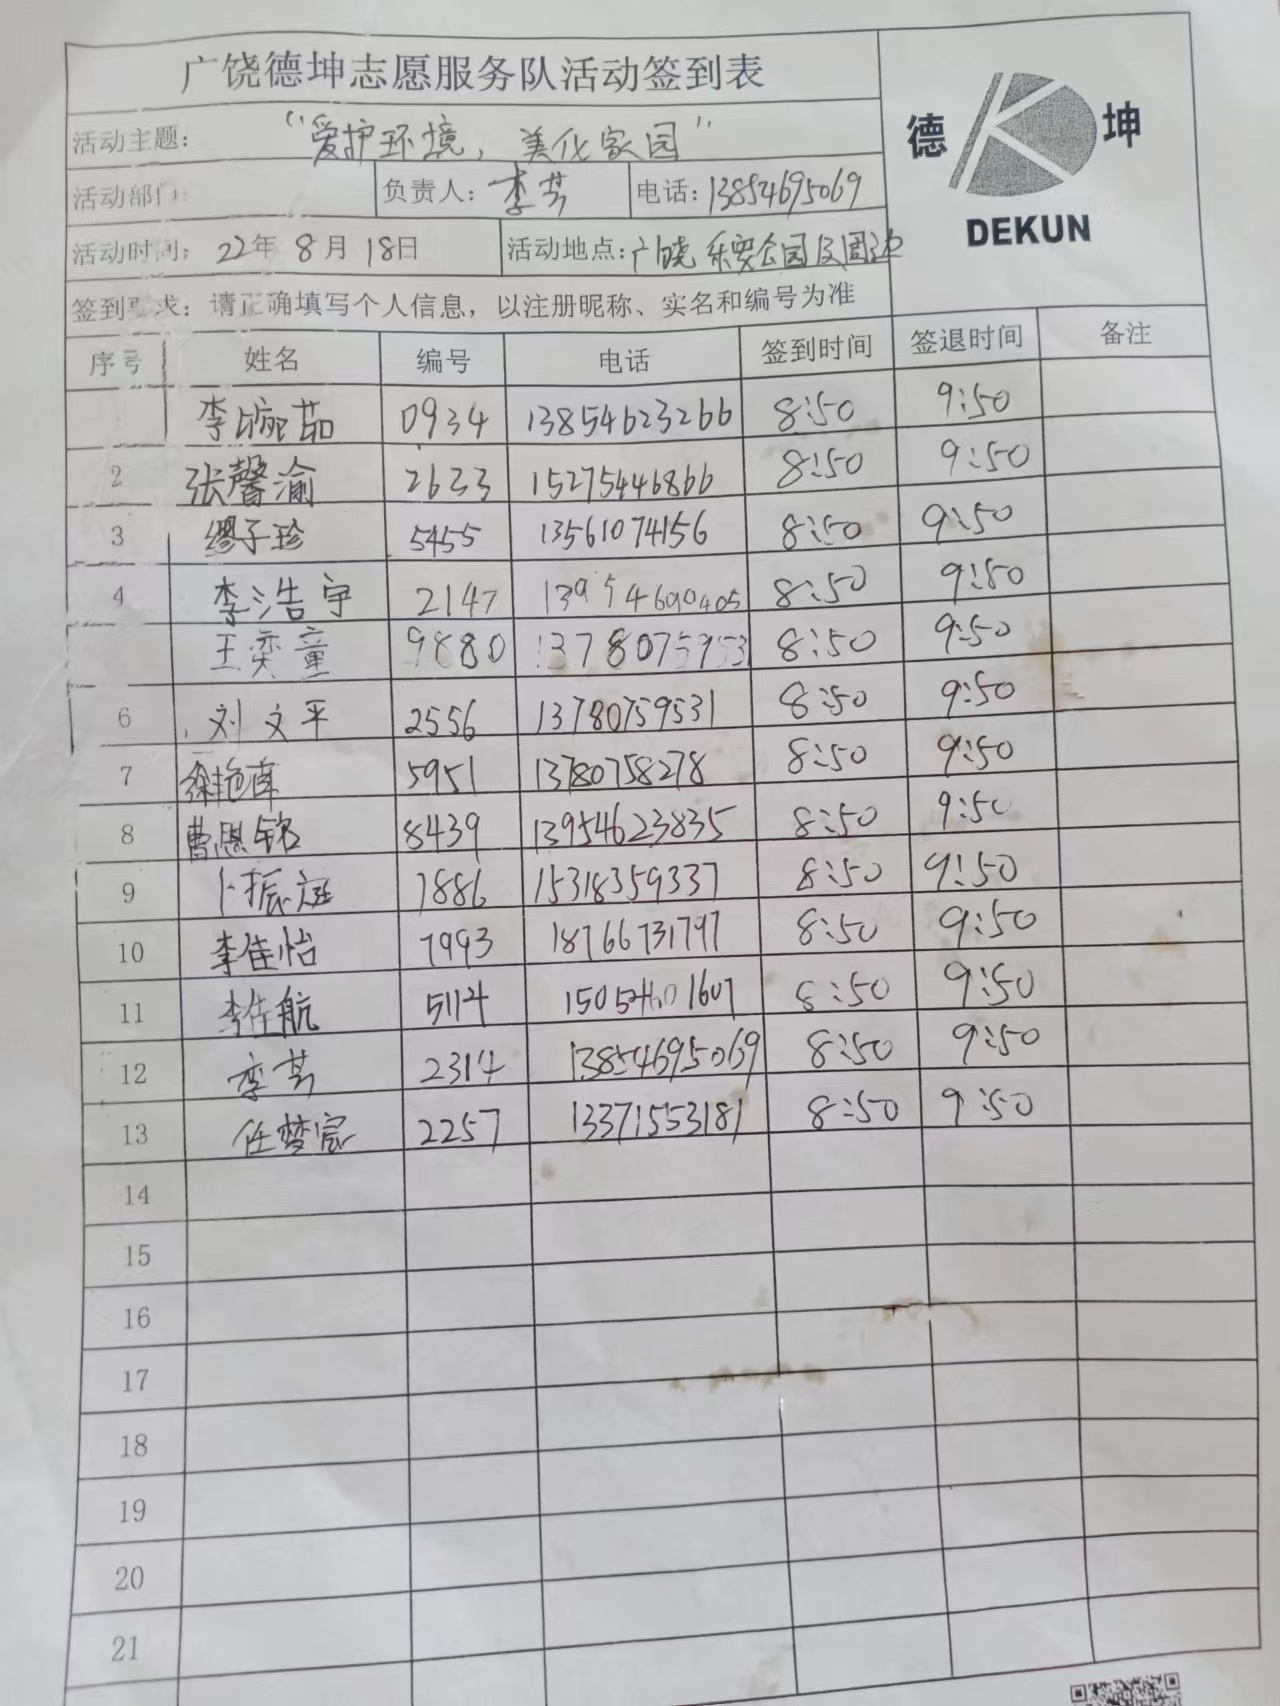 广饶德坤志愿服务队活动签到表
德 坤
DEKUN
活动主题： “爱护环境，美化家园”
活动部门 负责人：李芳 电话：13854695069
活动时间：22年8月18日 活动地点：广饶乐安公园及周边
签到要求：请正确填写个人信息，以注册昵称、实名和编号为准
序号 姓名 编号 电话 签到时间 签退时间 备注
李婉茹 0934 13854623266 8:50 9:50
2 张馨渝 2633 15275446866 8:50 9:50
3 缪子珍 5455 13561074156 8:50 9:50
4 李浩宇 2147 13954690405 8:50 9:50
王奕童 9880 13780759531 8:50 9:50
6 刘文平 2556 13780759531 8:50 9:50
7 徐艳萍 5951 13780758278 8:50 9:50
8 曹恩铭 8439 13954623835 8:50 9:50
9 卜振庭 7886 15318359337 8:50 9:50
10 李佳怡 7993 18766731797 8:50 9:50
11 李佳航 5114 15054601607 8:50 9:50
12 李芳 2314 13854695069 8:50 9:50
13 任梦宸 2257 13371553181 8:50 9:50
14
15
16
17
18
19
20
21